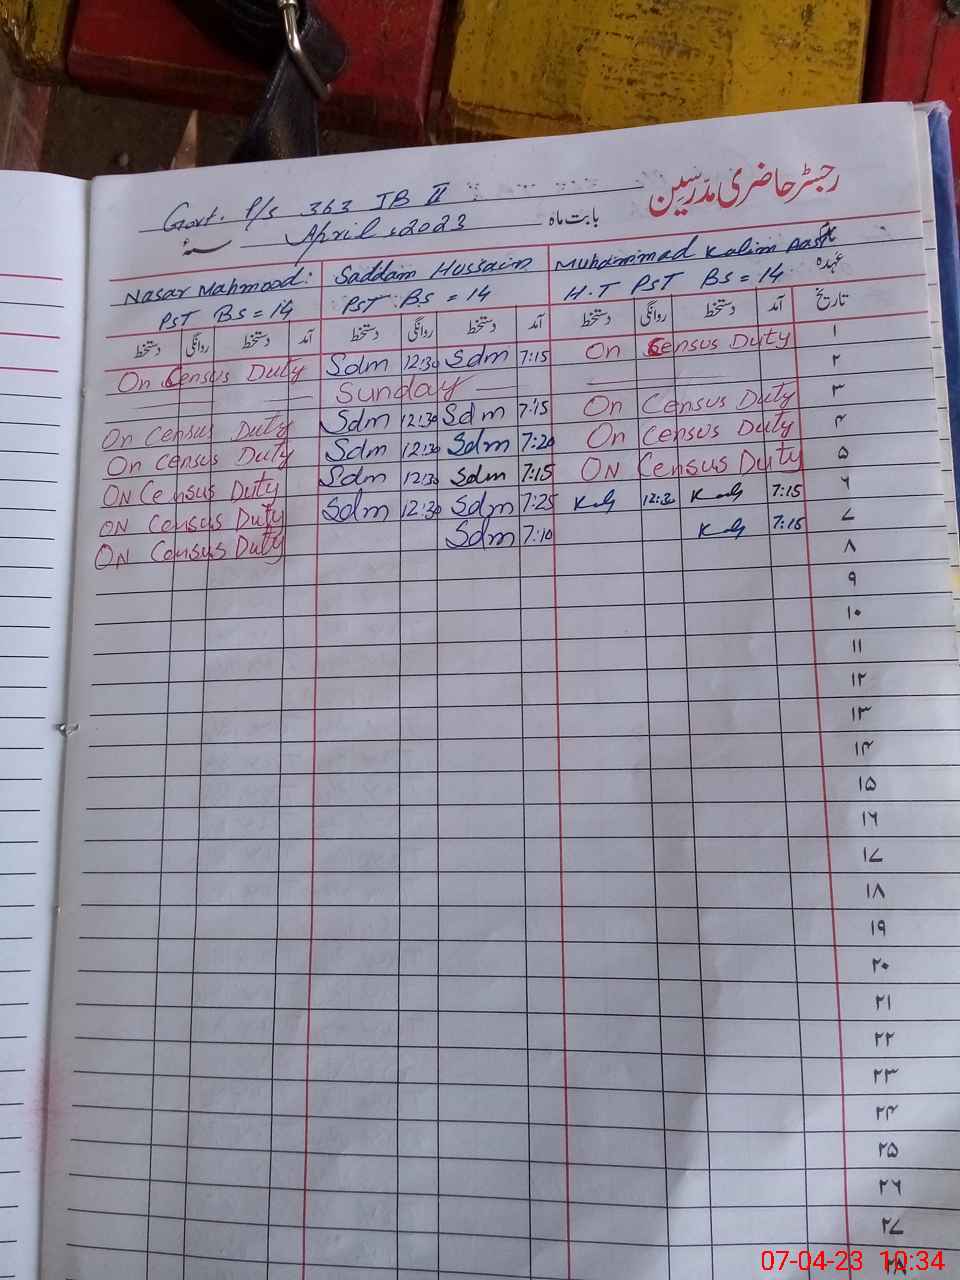 رجسٹر حاضری مدرسین
Govt. P/s 363 JB II
بابت ماہ April, 2023 سنہ
عہدہ
Muhammad Kalim
Saddam Hussain
Nasar Mahmood:
H.T PST BS = 14
PST BS = 14
PST BS = 14
تاریخ آمد دستخط روانگی دستخط آمد دستخط روانگی دستخط آمد دستخط روانگی دستخط
On Census Duty Sdm 12:30 Sdm 7:15 On Census Duty ۱
Sunday ۲
On Census Duty Sdm 12:30 Sdm 7:15 On Census Duty ۳
On Census Duty Sdm 12:30 Sdm 7:20 On Census Duty ۴
ON Census Duty Sdm 12:30 Sdm 7:15 ON Census Duty ۵
ON Census Duty Sdm 12:30 Sdm 7:25 12:30 7:15 ۶
ON Census Duty Sdm 7:10 7:15 ۷
۸
۹
۱۰
۱۱
۱۲
۱۳
۱۴
۱۵
۱۶
۱۷
۱۸
۱۹
۲۰
۲۱
۲۲
۲۳
۲۴
۲۵
۲۶
۲۷
۲۸
07-04-23 10:34